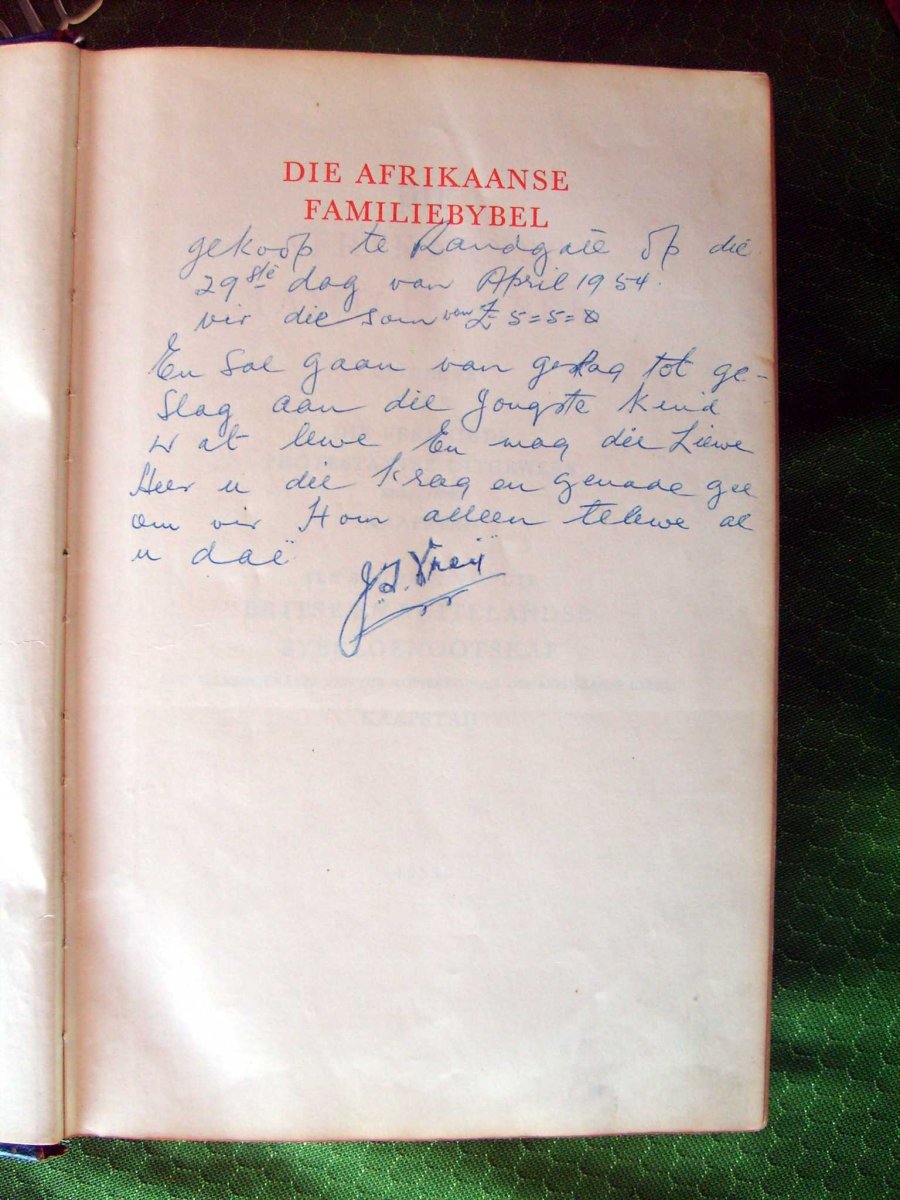 DIE AFRIKAANSE
FAMILIEBYBEL
gekoop te Randgate op die
29ste dag van April 1954.
vir die som van £ 5=5=0
En sal gaan van geslag tot ge-
slag aan die Jongste kind
wat lewe En mag die Liewe
Heer u die krag en genade gee
om vir Hom alleen te lewe al
u daë
J.J.